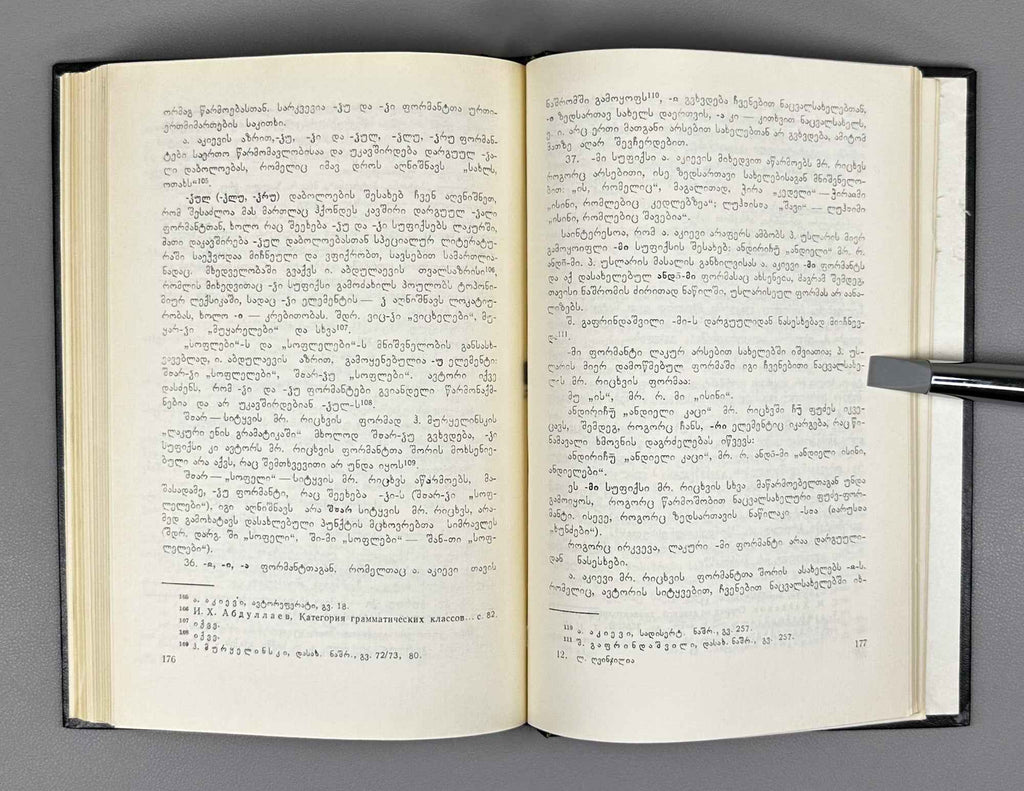 ორმაგ წარმოებასთან. სარკვევია -ჯუ და -ჯი ფორმანტთა ურთი-
ერთმიმართების საკითხი.
ა. აკიევის აზრით, -ჯუ, -ჯი და -ჯულ, -ჯლუ, -ჯრუ ფორმან-
ტები საერთო წარმომავლობისაა და უკავშირდება დარგუულ -ჯა-
ლი დაბოლოებას, რომელიც იმავ დროს აღნიშნავს „სახლს,
ოთახს“105.
-ჯულ (-ჯლუ, -ჯრუ) დაბოლოების შესახებ ჩვენ აღვნიშნეთ,
რომ შესაძლოა მას მართლაც ჰქონდეს კავშირი დარგუულ -ჯალი
ფორმანტთან, ხოლო რაც შეეხება -ჯუ და -ჯი სუფიქსებს ლაკურში,
მათი დაკავშირება -ჯულ დაბოლოებასთან სპეციალურ ლიტერატუ-
რაში საეჭვოდაა მიჩნეული და ვფიქრობთ, სავსებით სამართლია-
ნადაც. მხედველობაში გვაქვს ი. აბდულაევის თვალსაზრისი106,
რომლის მიხედვითაც -ჯი სუფიქსი გამოძახილს პოულობს ტოპონი-
მიურ ლექსიკაში, სადაც -ჯი ელემენტის — ჯ აღნიშნავს ლოკატიუ-
რობას, ხოლო -ი — კრებითობას. შდრ. ვიც-ჯი „ვიცხელები“, მუ-
ყარ-ჯი „მუყარელები“ და სხვა107.
„სოფლები“-ს და „სოფლელები“-ს მნიშვნელობის განსასხ-
ვავებლად, ი. აბდულაევის აზრით, გამოყენებულია -უ ელემენტი:
შთარ-ჯი „სოფლელები“, შთარ-ჯუ „სოფლები“. ავტორი იქვე
დასძენს, რომ -ჯი და -ჯუ ფორმანტები გვიანდელი წარმონაქმ-
ნებია და არ უკავშირდებიან -ჯულ-ს108.
შთარ — სიტყვის მრ. რიცხვის ფორმად ჰ. მურყელინსკის
„ლაკური ენის გრამატიკაში“ მხოლოდ შთარ-ჯუ გვხვდება, -ჯი
სუფიქსი კი ავტორს მრ. რიცხვის ფორმანტთა შორის მოხსენიე-
ბული არა აქვს, რაც შემთხვევითი არ უნდა იყოს109.
შთარ — „სოფელი“ — სიტყვის მრ. რიცხვს აწარმოებს, მა-
შასადამე, -ჯუ ფორმანტი, რაც შეეხება -ჯი-ს (შთარ-ჯი „სოფ-
ლელები“), იგი აღნიშნავს არა შთარ სიტყვის მრ. რიცხვს, არა-
მედ გამოხატავს დასახლებული პუნქტის მცხოვრებთა სიმრავლეს
(შდრ. დარგ. ში „სოფელი“, ში-მი „სოფლები“ — შან-თი „სოფ-
ლელები“).
36. -ა, -ი, -ა ფორმანტთაგან, რომელთაც ა. აკიევი თავის
105 ა. აკიევი, ავტორეფერატი, გვ. 18.
106 И. Х. Абдуллаев, Категория грамматических классов... с. 82.
107 იქვე.
108 იქვე.
109 ჰ. მურყელინსკი, დასახ. ნაშრ., გვ. 72/73, 80.
176
ნაშრომში გამოყოფს110, -ი გვხვდება ჩვენებით ნაცვალსახელებთან,
-ი ზედსართავ სახელს დაერთვის, -ა კი — კითხვით ნაცვალსახელს,
ე. ი. არც ერთი მათგანი არსებით სახელებთან არ გვხვდება, ამიტომ
მათზე აღარ შევჩერდებით.
37. -მი სუფიქსი ა. აკიევის მიხედვით აწარმოებს მრ. რიცხვს
როგორც არსებითი, ისე ზედსართავი სახელებისაგან მნიშვნელო-
ბით: „ის, რომელიც“, მაგალითად, ჭირა „კედელი“ —
„ისინი, რომლებიც კედლებზეა“; „შავი“ —
„ისინი, რომლებიც შავებია“.
საინტერესოა, რომ ა. აკიევი არაფერს ამბობს პ. უსლარის მიერ
გამოყოფილ -მი სუფიქსის შესახებ: ანდირიჩუ „ანდიელი“ მრ. რ.
ანდი̄-მი. პ. უსლარის მასალის განხილვისას ა. აკიევი -მი ფორმანტს
და აქ დასახელებულ ანდი̄-მი ფორმასაც ახსენებს, მაგრამ შემდეგ,
თავისი ნაშრომის ძირითად ნაწილში, უსლარისეულ ფორმას არ აანა-
ლიზებს.
შ. გაფრინდაშვილი -მი-ს დარგუულიდან ნასესხებად მიიჩნევ-
და111.
-მი ფორმანტი ლაკურ არსებით სახელებში იშვიათია; პ. უს-
ლარის მიერ დამოწმებულ ფორმაში იგი ჩვენებითი ნაცვალსახე-
ლის მრ. რიცხვის ფორმაა:
მუ „ის“, მრ. რ. მი „ისინი“.
ანდირიჩუ „ანდიელი კაცი“ მრ. რიცხვში ჩუ ფუძეს იკვე-
ცავს, შემდეგ, როგორც ჩანს, -რი ელემენტიც იკარგება, რაც წი-
ნამავალი ხმოვნის დაგრძელებას იწვევს:
ანდირიჩუ „ანდიელი კაცი“, მრ. რ. ანდი̄-მი „ანდიელი ისინი,
ანდიელები“.
ეს -მი სუფიქსი მრ. რიცხვის სხვა მაწარმოებელთაგან უნდა
გამოიყოს, როგორც წარმოშობით ნაცვალსახელური ფუძე-ფორ-
მანტი. ისევე, როგორც ზედსართავის ნაწილაკი -სთა (იარუსთა
„ხუნძები“).
როგორც ირკვევა, ლაკური -მი ფორმანტი არაა დარგუული-
დან ნასესხები.
ა. აკიევი მრ. რიცხვის ფორმანტთა შორის ასახელებს -ა-ს,
რომელიც, ავტორის სიტყვებით, ჩვენებით ნაცვალსახელებში იხ-
110 ა. აკიევი, სადისერტ. ნაშრ., გვ. 257.
111 შ. გაფრინდაშვილი, დასახ. ნაშრ., გვ. 257.
12. ლ. ღვინჯილია
177